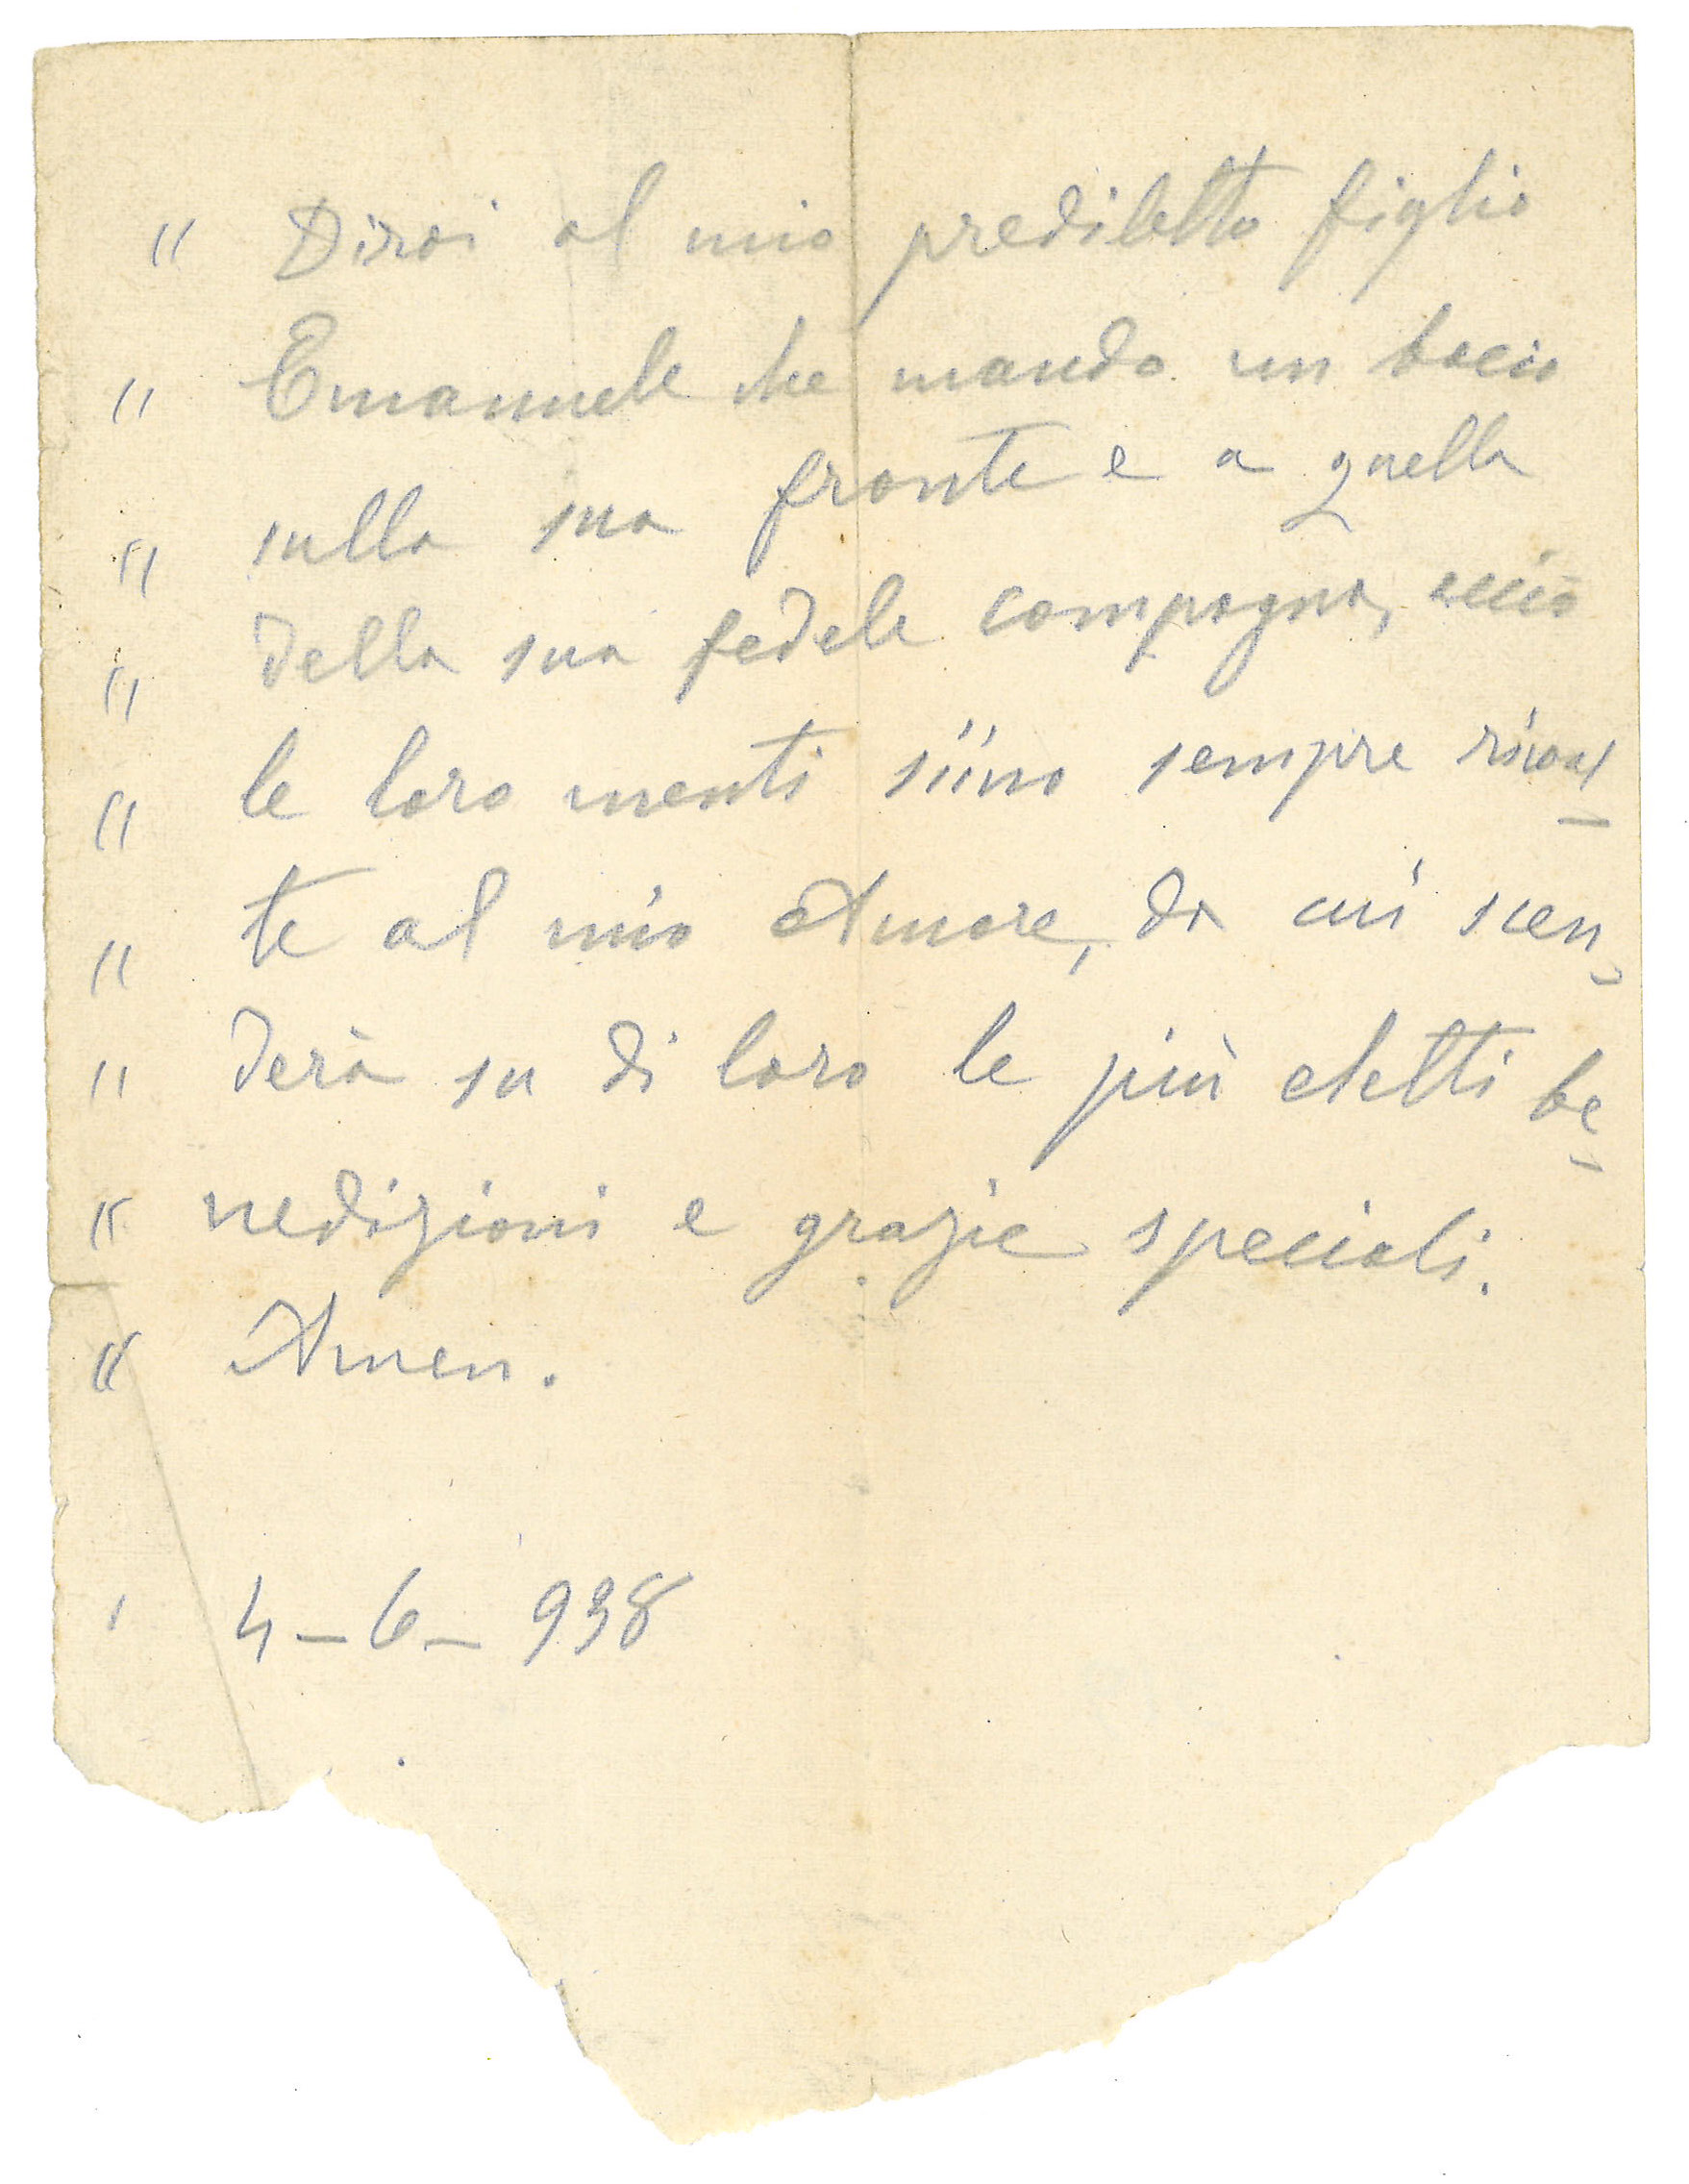 " Dirai al mio prediletto figlio
" Emanuele che mando un bacio
" sulla sua fronte e a quella
" della sua fedele compagna, acciò
" le loro menti siino sempre rivol-
" te al mio Amore, da cui scen-
" derà su di loro le più eletti be-
" nedizioni e grazie speciali.
" Amen.
' 4-6-938